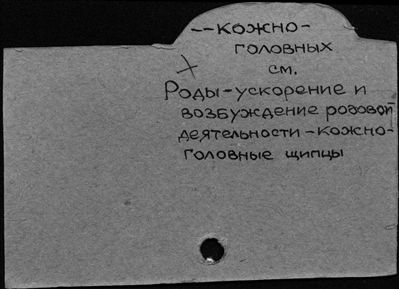 --кожно-
головных
см.
Роды-ускорение и
возбуждение родовой
деятельности-кожно-
головные щипцы